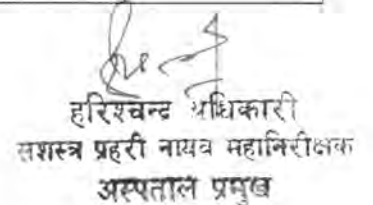 हरिश्चन्द्र अधिकारी
सशस्त्र प्रहरी नायव महानिरीक्षक
अस्पताल प्रमुख